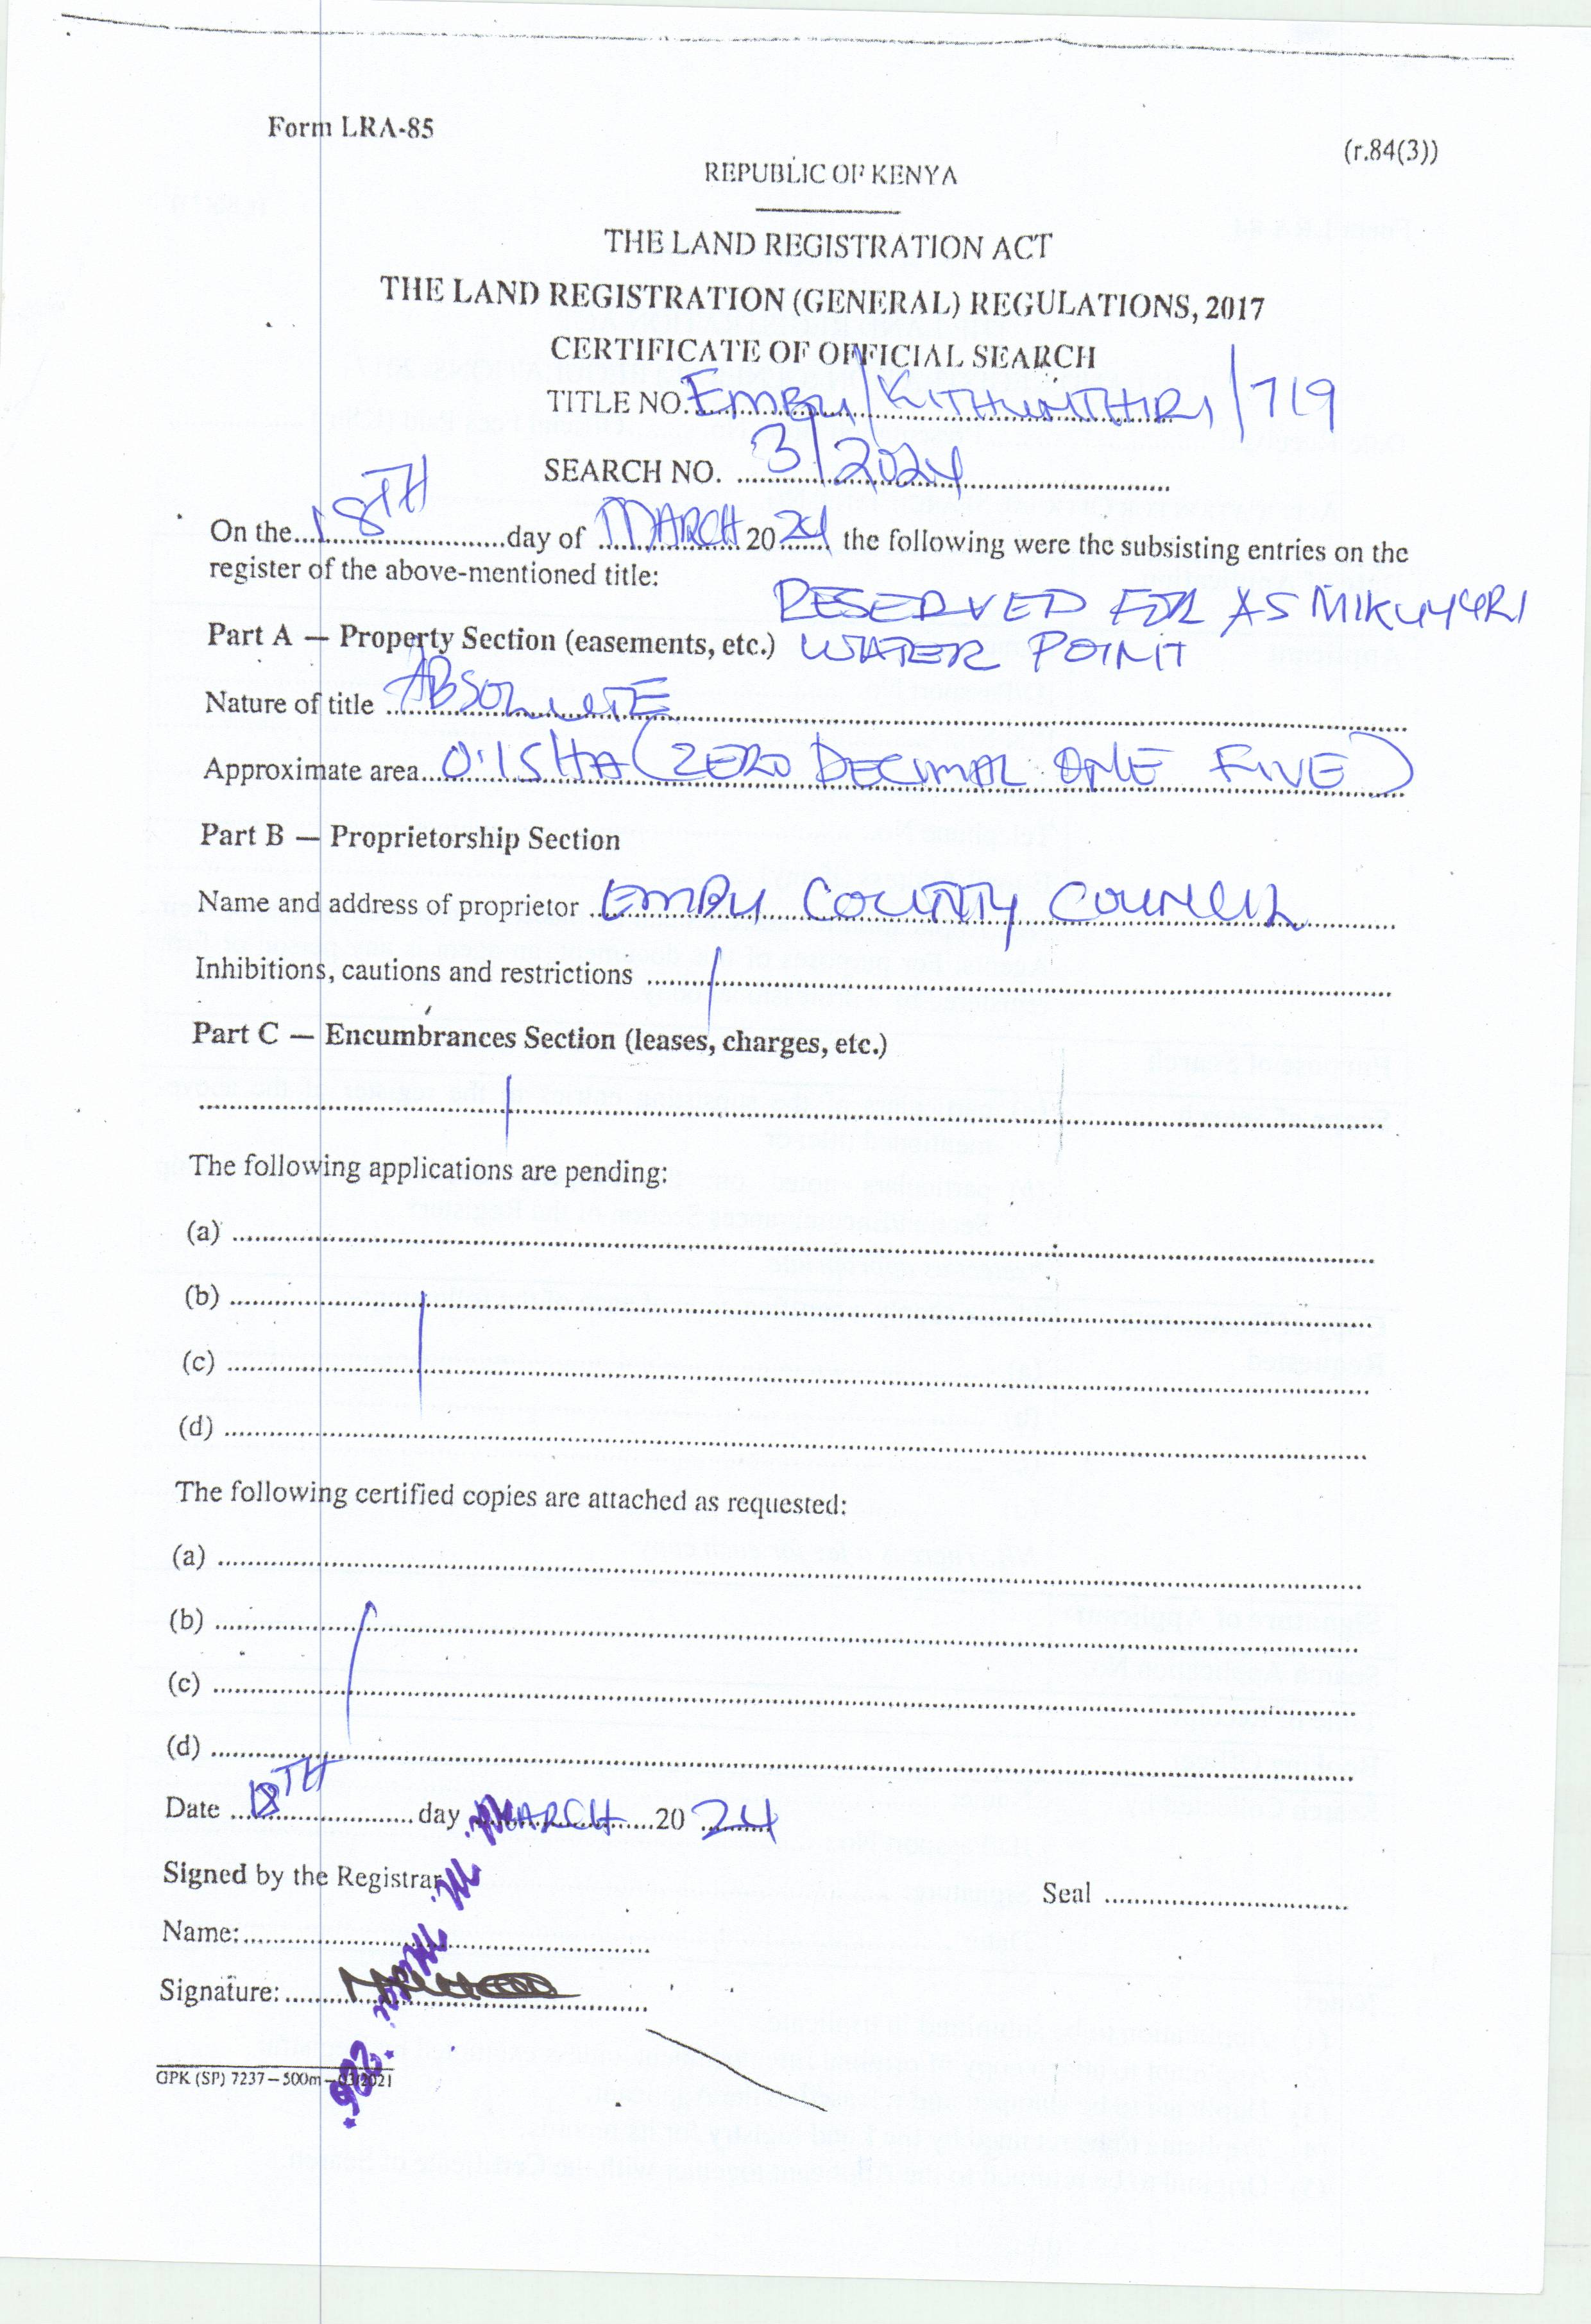 Form LRA-85
(r.84(3))
REPUBLIC OF KENYA
THE LAND REGISTRATION ACT
THE LAND REGISTRATION (GENERAL) REGULATIONS, 2017
CERTIFICATE OF OFFICIAL SEARCH
TITLE NO. EMBU/KITHUNTHIRI/719
SEARCH NO. 3/2024
On the 18TH day of MARCH 2024 the following were the subsisting entries on the
register of the above-mentioned title:
RESERVED FOR AS MIKUYURI
Part A — Property Section (easements, etc.) WATER POINT
Nature of title ABSOLUTE
Approximate area 0.15HA (ZERO DECIMAL ONE FIVE)
Part B — Proprietorship Section
Name and address of proprietor EMBU COUNTY COUNCIL
Inhibitions, cautions and restrictions
Part C — Encumbrances Section (leases, charges, etc.)
The following applications are pending:
(a)
(b)
(c)
(d)
The following certified copies are attached as requested:
(a)
(b)
(c)
(d)
Date 18TH day MARCH 2024
Signed by the Registrar
Seal
Name:
Signature:
GPK (SP) 7237—500m—03/2021